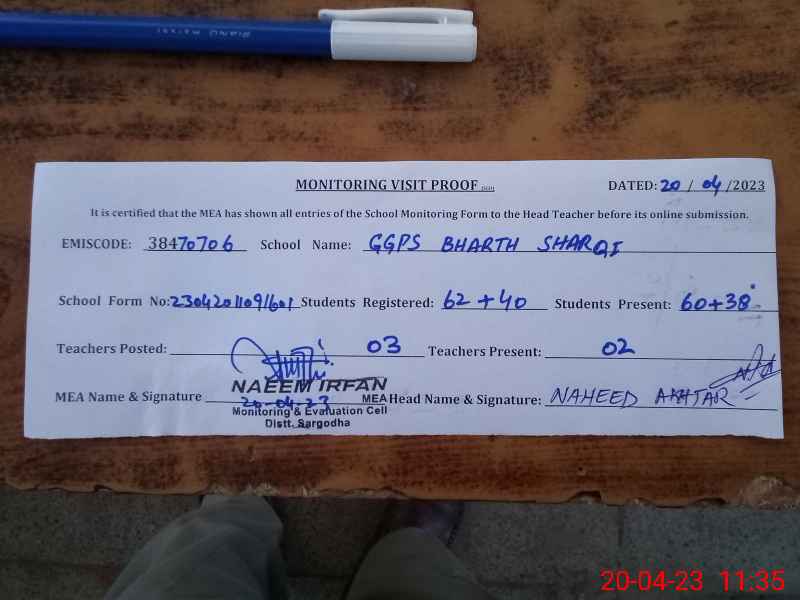 PIANO
MONITORING VISIT PROOF
DATED: 20 / 04 /2023
It is certified that the MEA has shown all entries of the School Monitoring Form to the Head Teacher before its online submission.
EMISCODE: 38470706 School Name: GGPS BHARTH SHARQI
School Form No: 23042011091601 Students Registered: 62+40 Students Present: 60+38
Teachers Posted: 03 Teachers Present: 02
MEA Name & Signature NAEEM IRFAN Head Name & Signature: NAHEED AKHTAR
20-04-23 MEA
Monitoring & Evaluation Cell
Distt. Sargodha
20-04-23 11:35